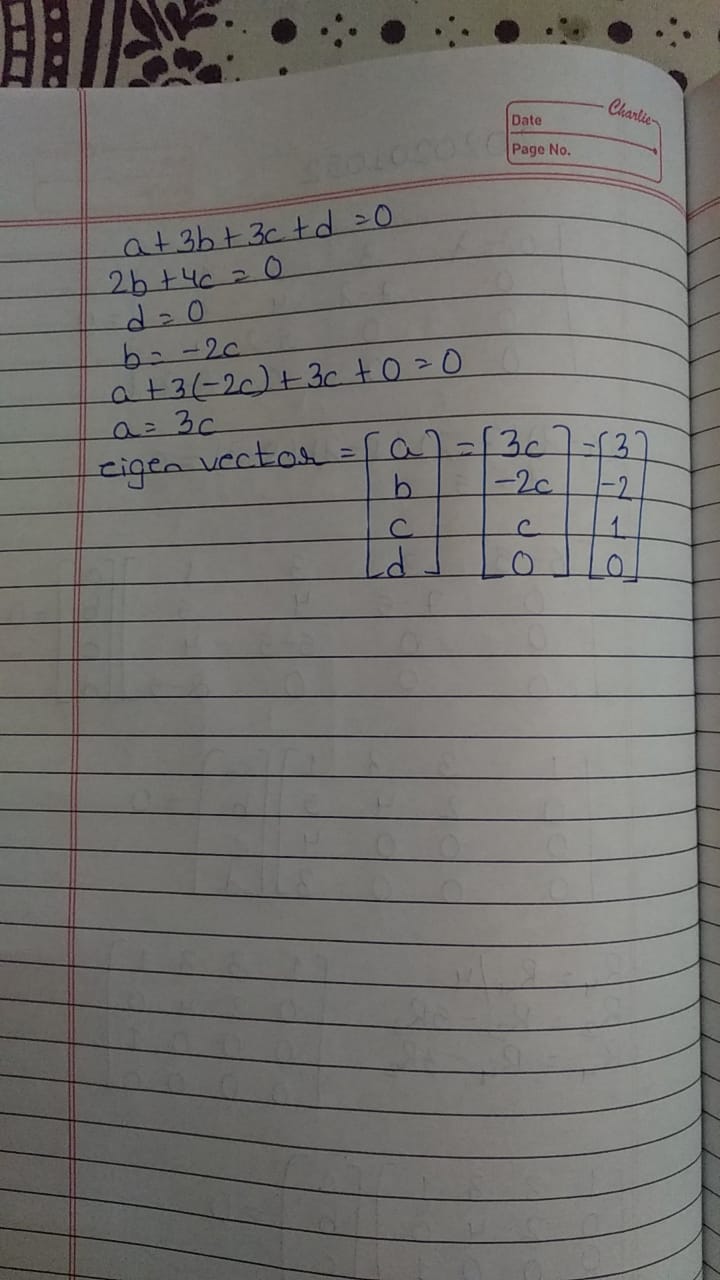 Charlie
Date
Page No.
a + 3b + 3c + d = 0
2b + 4c = 0
d = 0
b = -2c
a + 3(-2c) + 3c + 0 = 0
a = 3c
eigen vector = [a] = [3c] = [3]
[b] [-2c] [-2]
[c] [c] [1]
[d] [0] [0]